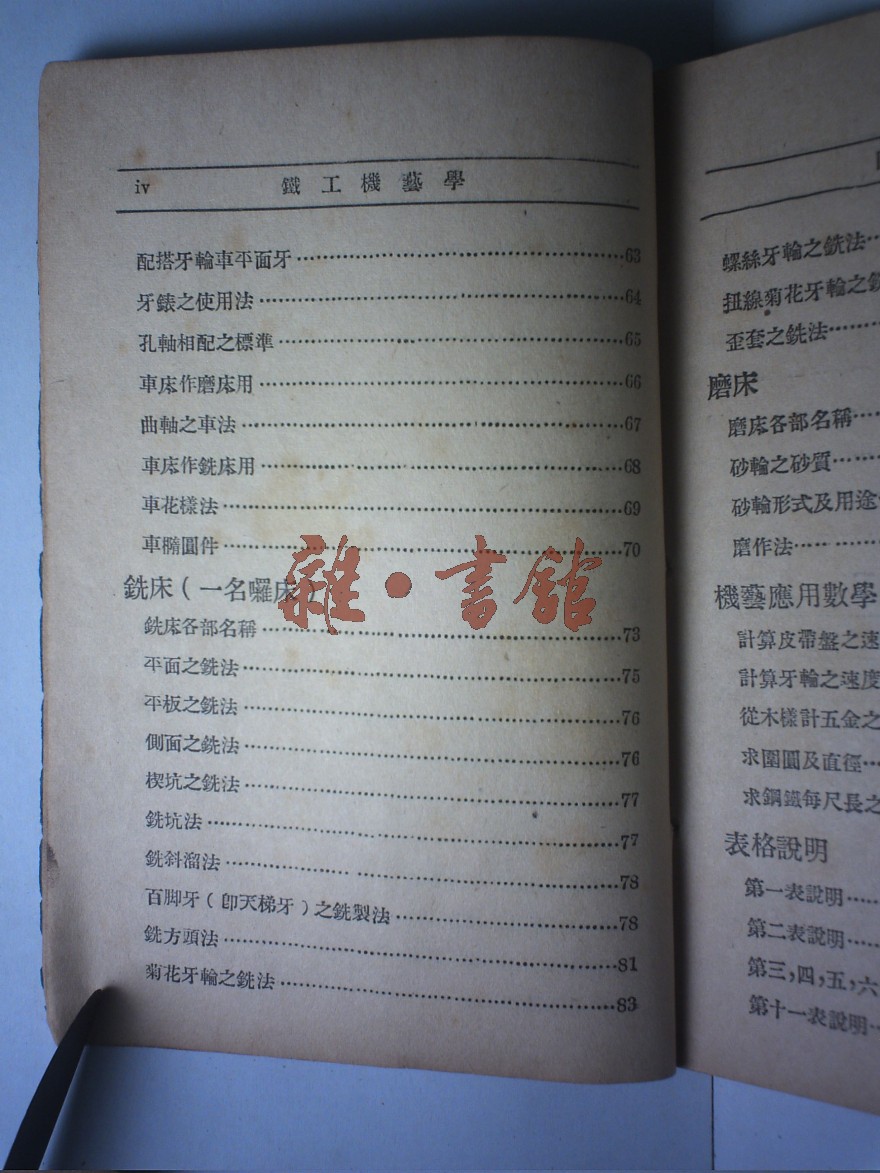 iv 鐵工機藝學
配搭牙輪車平面牙……63
牙錶之使用法……64
孔軸相配之標準……65
車床作磨床用……66
曲軸之車法……67
車床作銑床用……68
車花樣法……69
車橢圓件……70
銑床(一名囉床)
銑床各部名稱……73
平面之銑法……75
平板之銑法……76
側面之銑法……76
楔坑之銑法……77
銑坑法……77
銑斜溜法……78
百脚牙(卽天梯牙)之銑製法……78
銑方頭法……81
菊花牙輪之銑法……83
雜·書館
螺絲牙輪之銑法……
扭線菊花牙輪之銑
歪套之銑法……
磨床
磨床各部名稱……
砂輪之砂質……
砂輪形式及用途
磨作法……
機藝應用數學
計算皮帶盤之速
計算牙輪之速度
從木樣計五金之
求圍圓及直徑……
求鋼鐵每尺長之
表格說明
第一表說明……
第二表說明……
第三,四,五,六
第十一表說明……